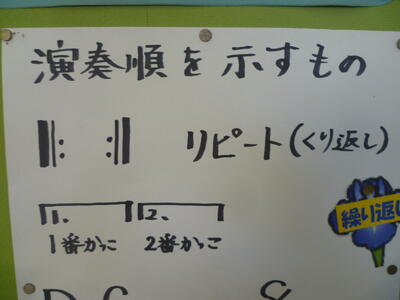 演奏順を示すもの
リピート(くり返し)
1. 2.
1番かっこ 2番かっこ
繰り返し